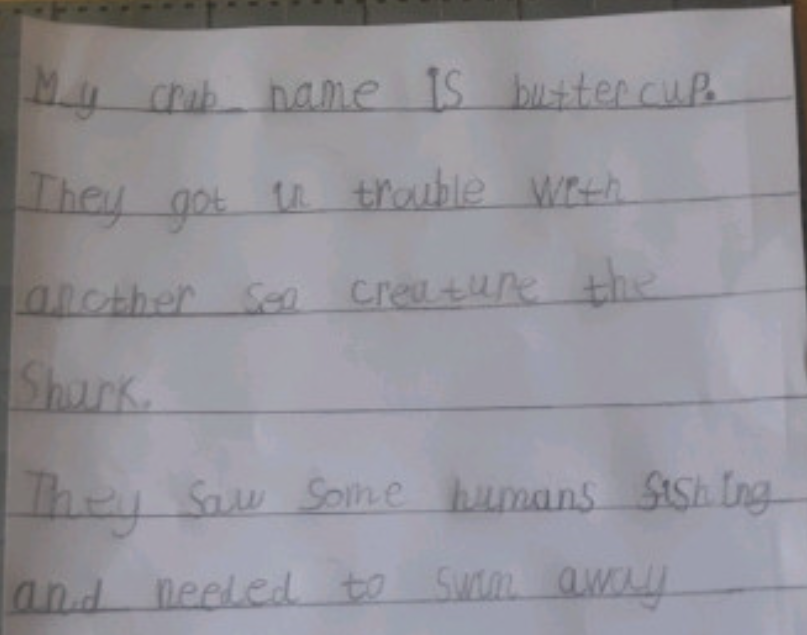 My crab name is buttercup.
They got in trouble with
another sea creature the
Shark.
They saw some humans fishing
and needed to swim away